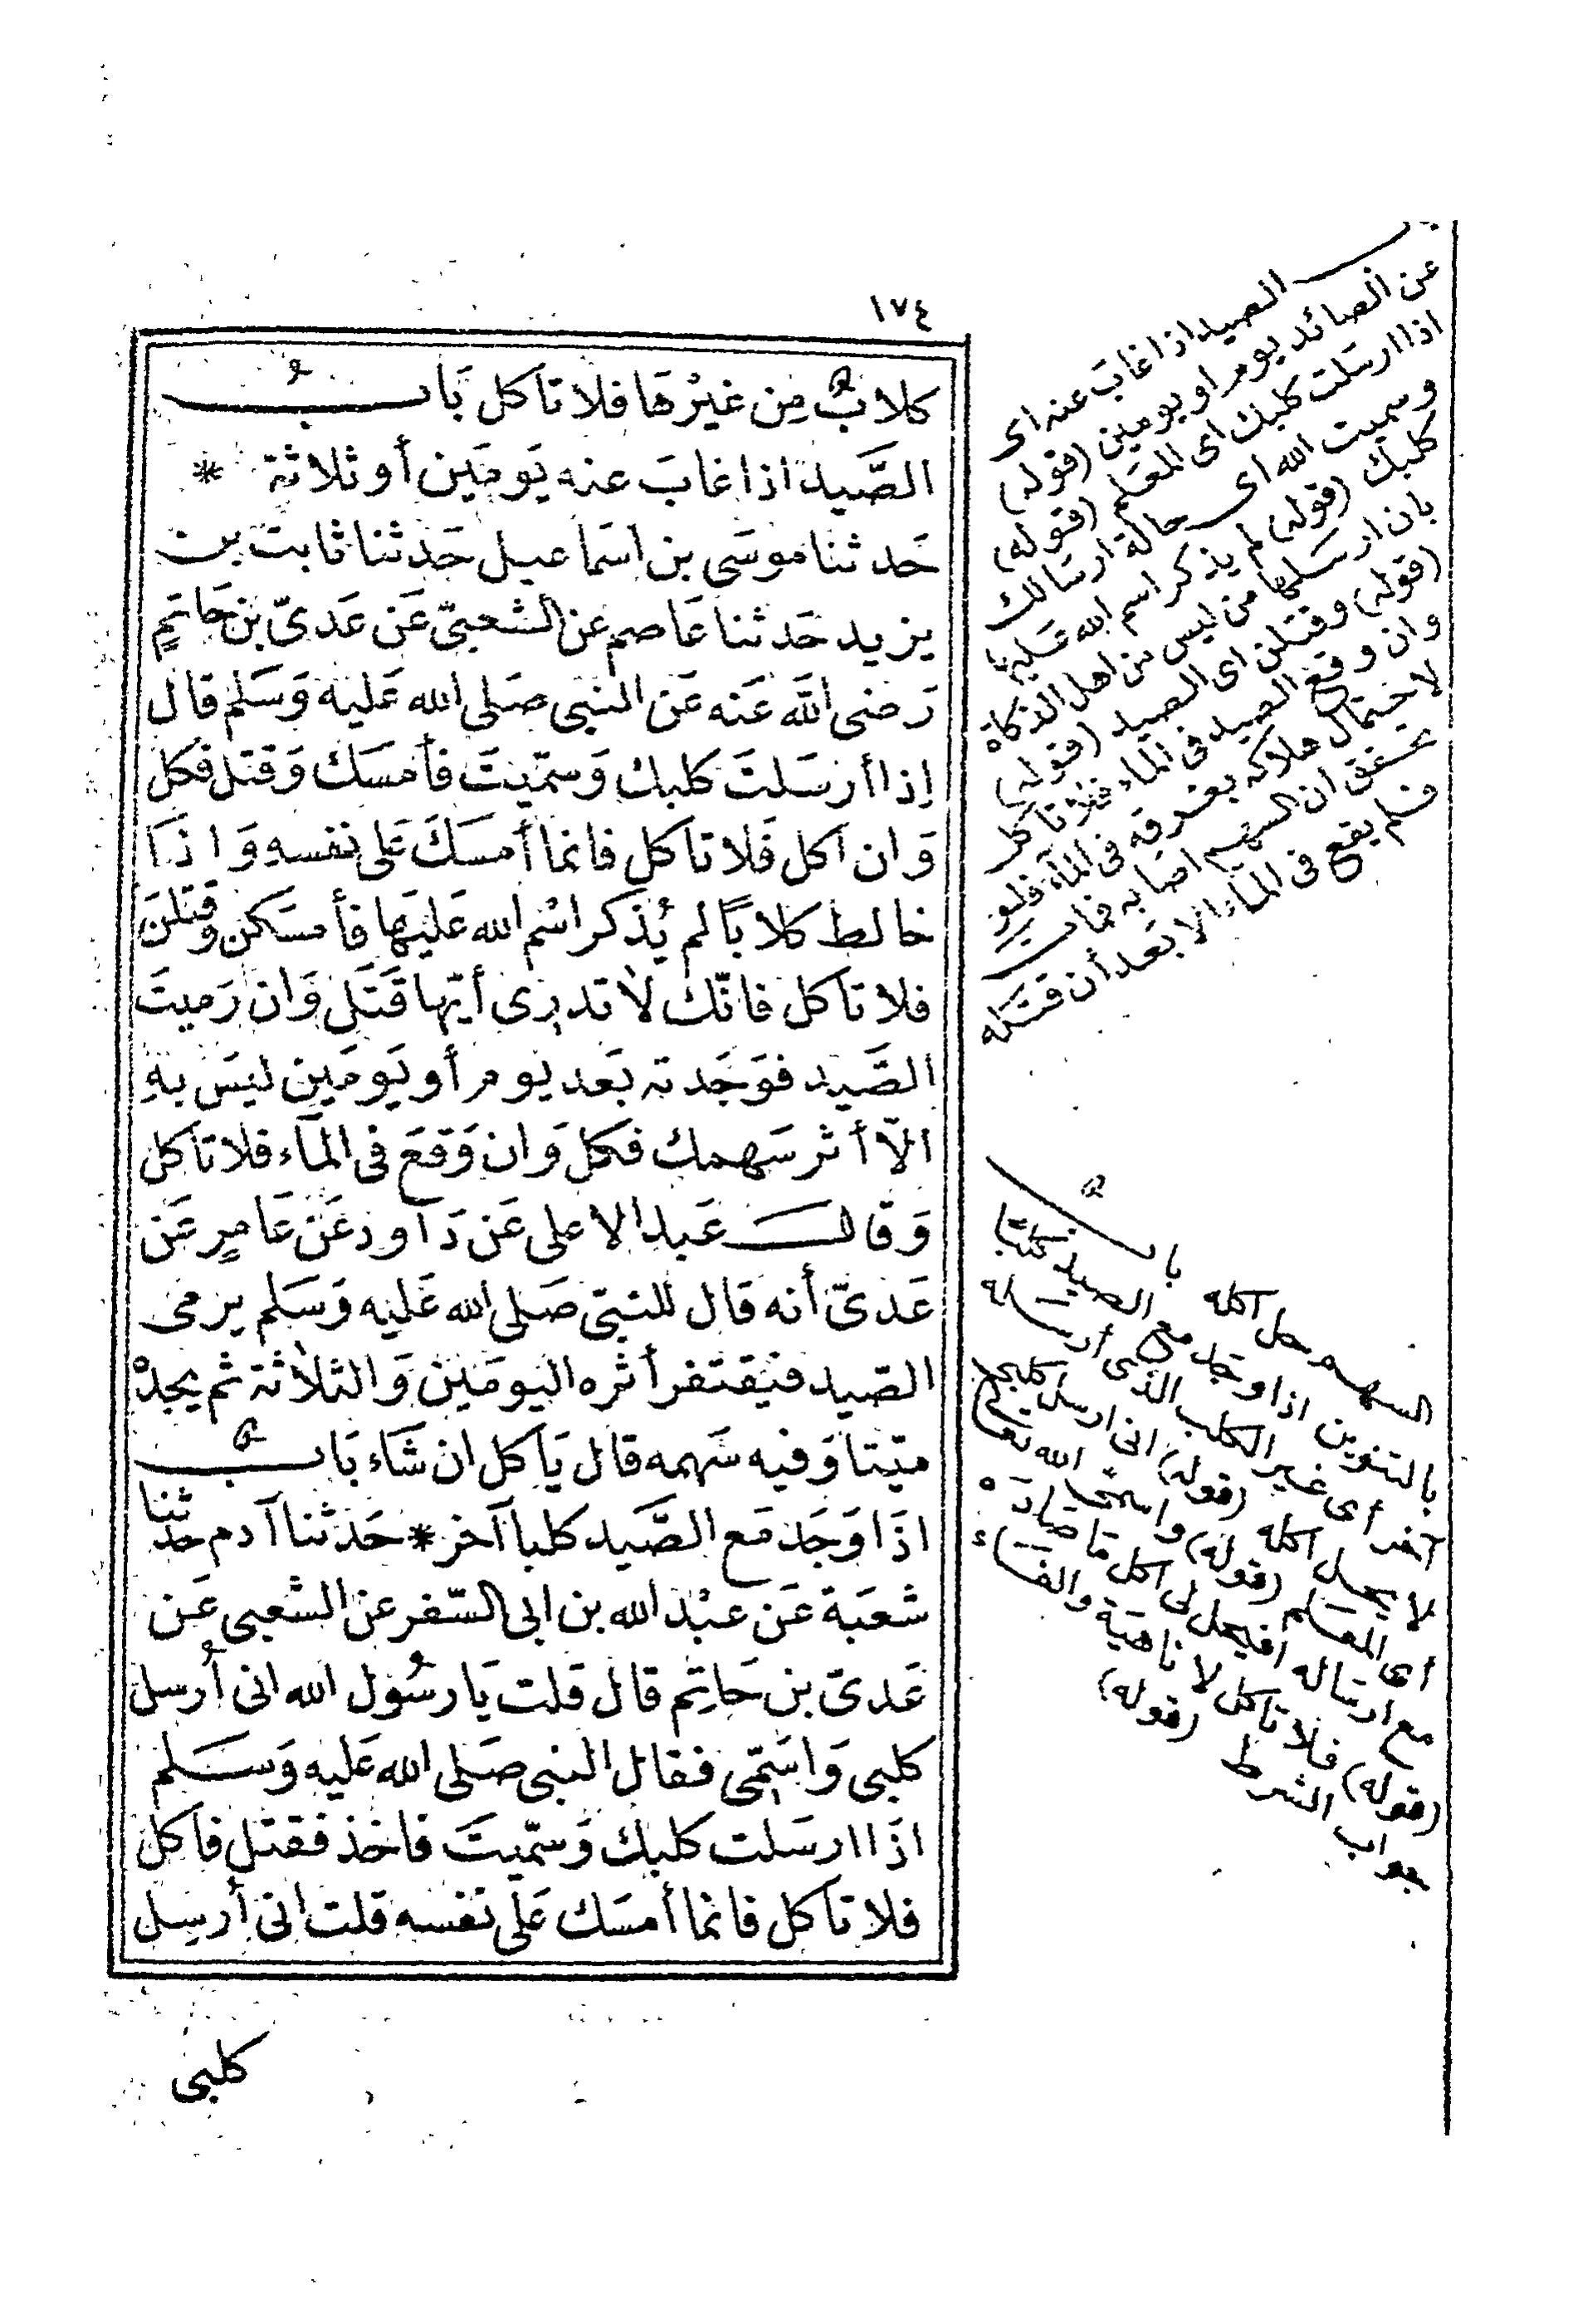 ١٧٤
كلابٌ مِن غيْرهَا فلا تاكل بَابُ
الصَّيد اذا غابَ عنه يَومَين أو ثلاثة *
حَدثنا موسَى بن اسَماعيل حَدثنا ثابت بن
يزيد حَدثنا عَاصم عَن الشعبىّ عَن عَدىّ بن حَاتمٍ
رَضى الله عَنه عَن النبى صَلى الله عَليه وَسَلم قال
اِذا أرسَلتَ كلبك وَسمّيتَ فأمسَك وَقتل فكل
وَان اكل فَلا تاكل فانما أمسَكَ عَلى نفسه وَاذَا
خالط كلابًا لم يُذكر اسْم الله عَليَها فأمسَكن وقتلنَ
فلا تاكل فانّك لا تدرى أيّها قَتَل وَان رَميتَ
الصَّيد فوَجَدته بَعد يوم أو يَومَين ليسَ بهِ
الاّ أثر سَهمك فكل وَان وَقعَ فى المآء فلا تاكل
وَقال عَبد الاعلى عَن دَاود عَن عَامرٍ عَن
عَدىّ أنه قال للنبىّ صَلى الله عَليه وَسَلم يرمى
الصّيد فيَقتفر أثره اليومَين وَالثلاثة ثم يجدْه
ميّتا وَفيه سَهمه قال يَاكل ان شَاء بَاب
اذَا وَجَد مَع الصَّيد كلبا آخر * حَدثنا آدم حدثنا
شعبَة عَن عبْد الله بن ابى السّفر عن الشعبى عَن
عَدىّ بن حَاتِم قال قلت يَا رسُول الله انى أُرسل
كلبى وَاسَمّى فقال النبى صَلى الله عَليه وَسَلم
اذَا ارسَلت كلبك وَسمّيتَ فاخذ فقتل فاكل
فلا تاكل فانما أمسَك عَلى نفسه قلت انى أرسِل
كلبى
الصيد اذا غابَ عنه اى
عن الصائد يوم او يومين (قوله)
اذا ارسَلت كلبك اى المعَلم (قوله)
وسميت الله اى حالة ارسَالك
كلبك (قوله) لم يذكر اسم الله عَليها
بان ارسَلها من ليس من اهل الذكاة
(قوله) وقتلن اى الصيد (قوله)
وان وقع الصيد فى الماء فلا تاكل
لاحتمال هلاكه بغرقه فى المآء فلو
تحقق ان السهم اصَابه فمات
فلم يقع فى الماء الا بَعد أن قتَله
السهم حل اكله باب
بالتنوين اذا وجَد مع الصيد كلبًا
آخر أى غير الكلب الذى أرسَله
لا يحل اكله (قوله) انى ارسل كلبى
أى المعَلم (قوله) واسمّى الله تعَالى
مع ارسَاله افيحل لى اكل مَا صَادَه
(قوله) فلا تاكل لا ناهيَة والفَاء
جواب الشرط (قوله)